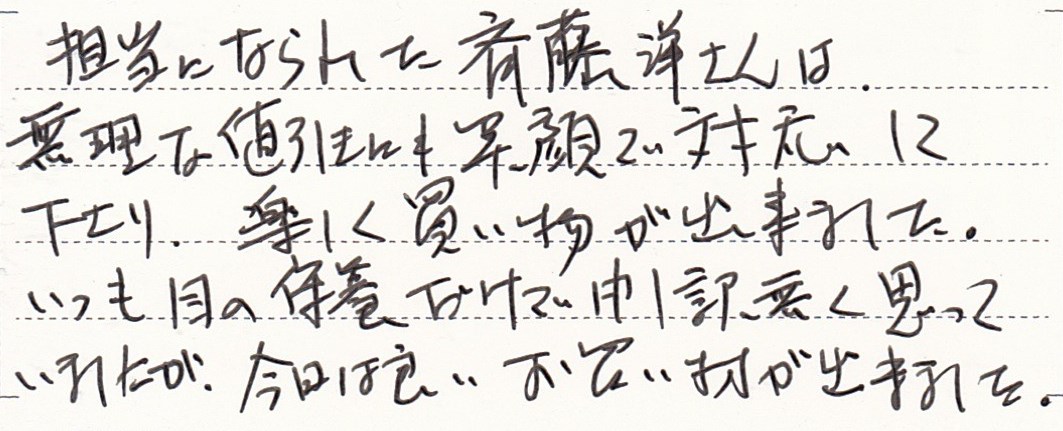 担当になられた斉藤洋さんは、
無理な値引きにも笑顔で対応して
下さり、楽しく買い物が出来ました。
いつも目の保養だけで申し訳無く思って
いましたが、今日は良いお買い物が出来ました。